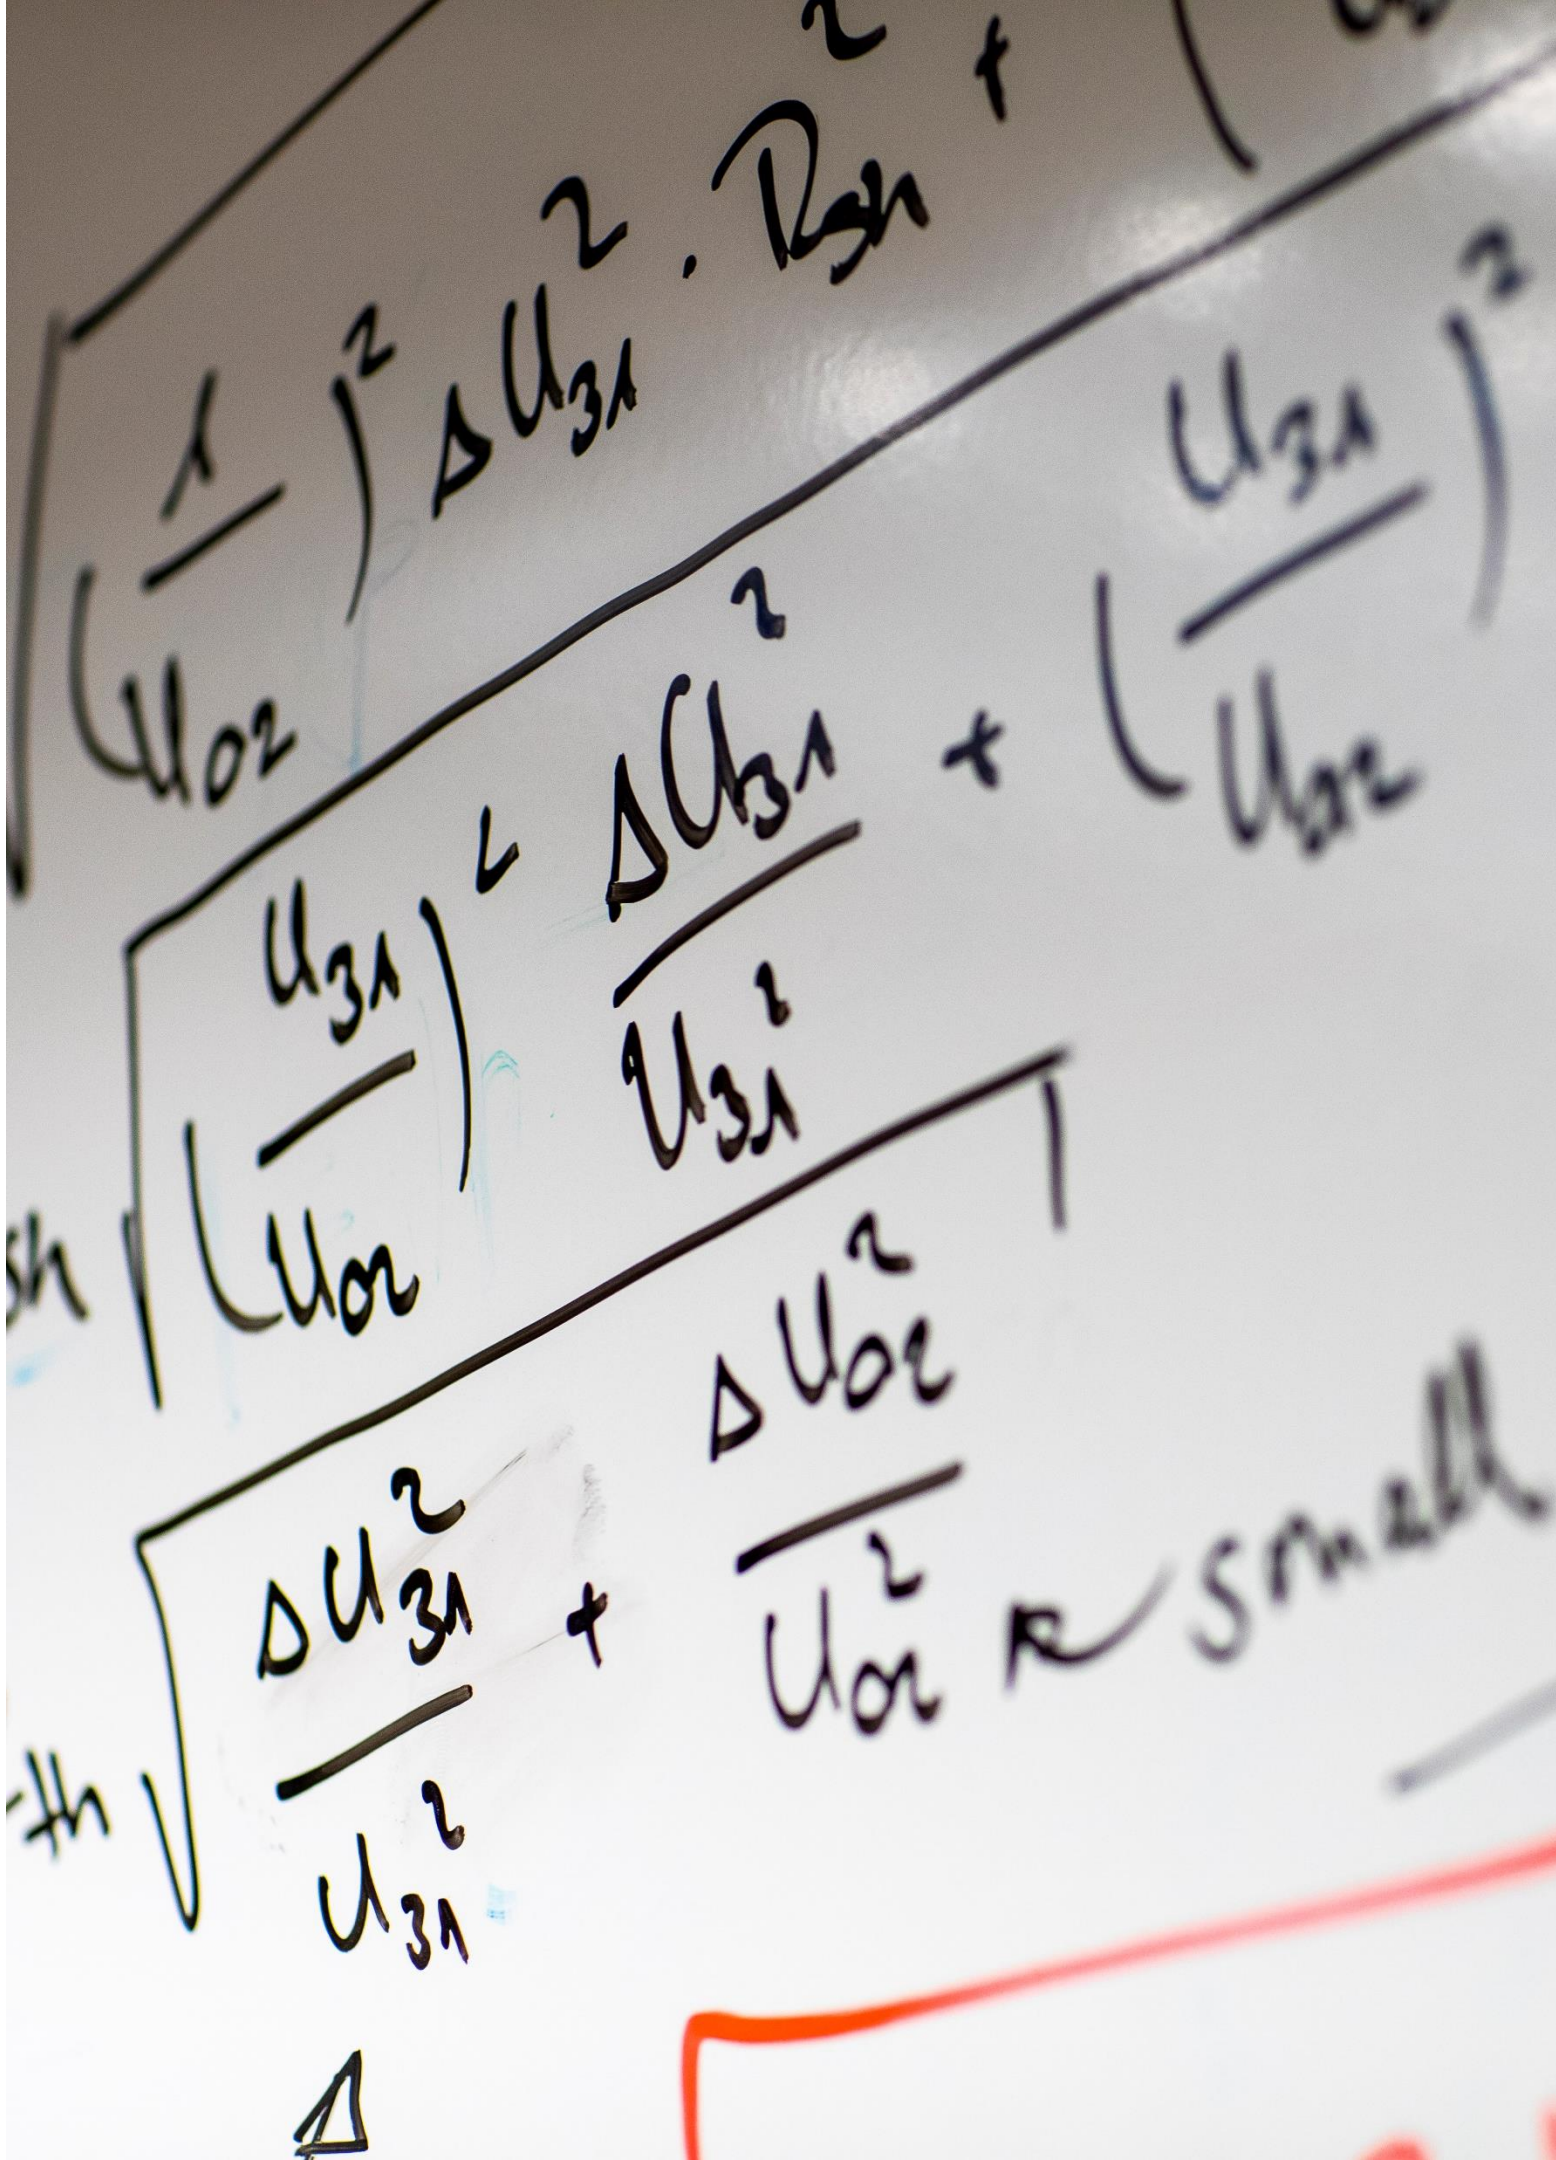 √((1/U₀₂)² ΔU₃₁² · Rsh² + (
sh √((U₃₁/U₀₂)² ΔU₃₁²/U₃₁² + (U₃₁/U₀₂)²
th √(ΔU₃₁²/U₃₁² + ΔU₀₂²/U₀₂²) ↖ small
Δ